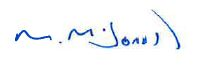 M. McDonald